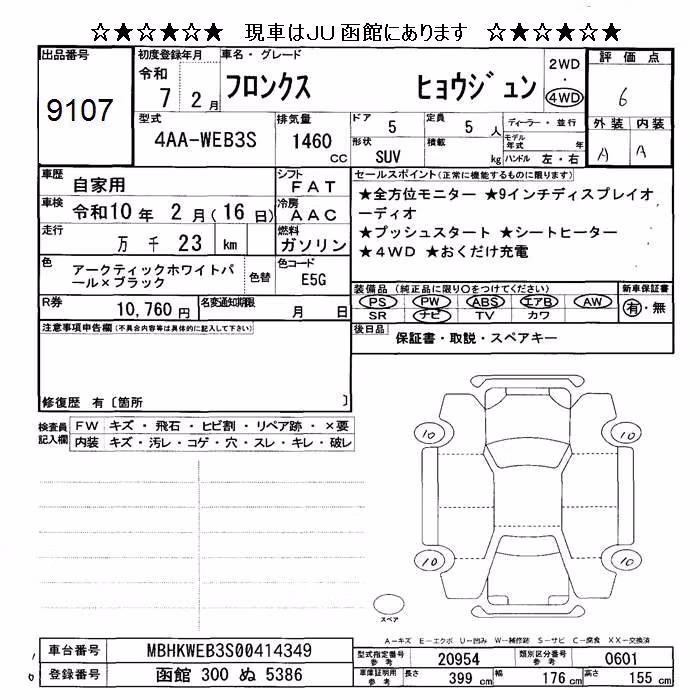 ☆★☆★☆★ 現車はＪＵ函館にあります ☆★☆★☆★
出品番号
9107
初度登録年月
令和
7 2 月
車名・グレード
フロンクス ヒョウジュン
2WD
・
4WD
評価点
6
型式
4AA-WEB3S
排気量
1460
CC
ドア
5
定員
5 人
ディーラー・並行
形状
SUV
積載
kg
モデル年式 年
ハンドル 左・右
外装 内装
A A
車歴
自家用
シフト
FAT
車検
令和10 年 2 月(16 日)
冷房
AAC
走行
万 千 23 km
燃料
ガソリン
色
アークティックホワイトパ
ール×ブラック
色替
色コード
E5G
R券
10,760 円
名変通知期限
月 日
セールスポイント(正常に機能するものに限ります)
★全方位モニター ★9インチディスプレイオ
ーディオ
★プッシュスタート ★シートヒーター
★４WD ★おくだけ充電
装備品 (純正品に限り○をつけてください)
PS PW ABS エアB AW
SR ナビ TV カワ
新車保証書
有・無
後日品
保証書・取説・スペアキー
注意事項申告欄(不具合内容等は具体的に記入して下さい)
修復歴 有〔箇所 〕
検査員
記入欄
ＦＷ キズ・飛石・ヒビ割・リペア跡・×要
内装 キズ・汚レ・コゲ・穴・スレ・キレ・破レ
10 10
10 10
スペア
A－キズ E－エクボ U－凹み W－補修跡 S－サビ C－腐食 XX－交換済
車台番号 MBHKWEB3S00414349
登録番号 函館 300 ぬ 5386
型式指定番号
参考
20954
類別区分番号
参考
0601
車庫証明用
参考
長さ 399 cm 幅 176 cm 高さ 155 cm